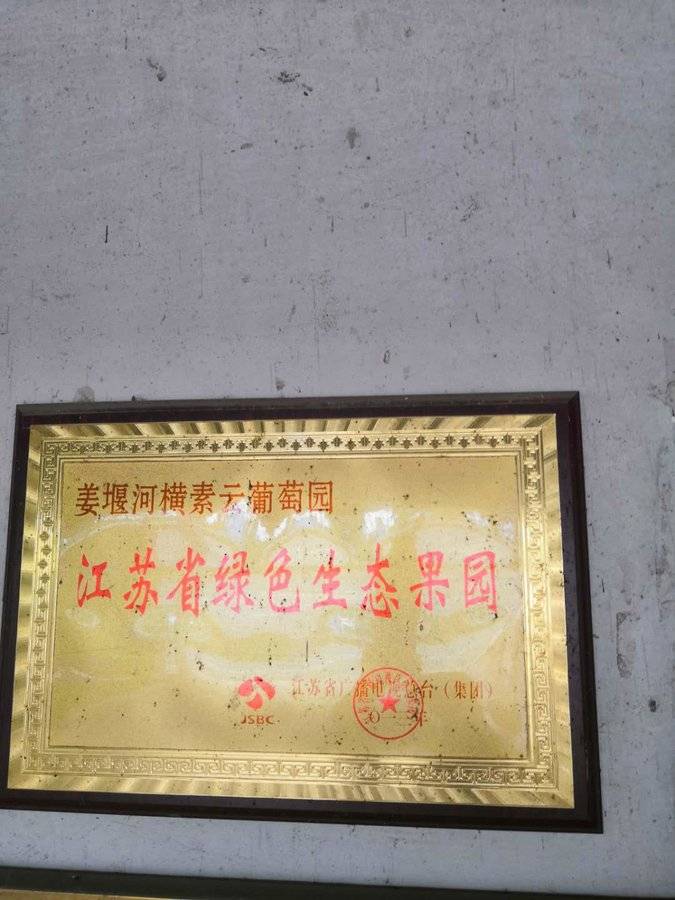 姜堰河横素云葡萄园
江苏省绿色生态果园
JSBC
江苏省广播电视总台（集团）